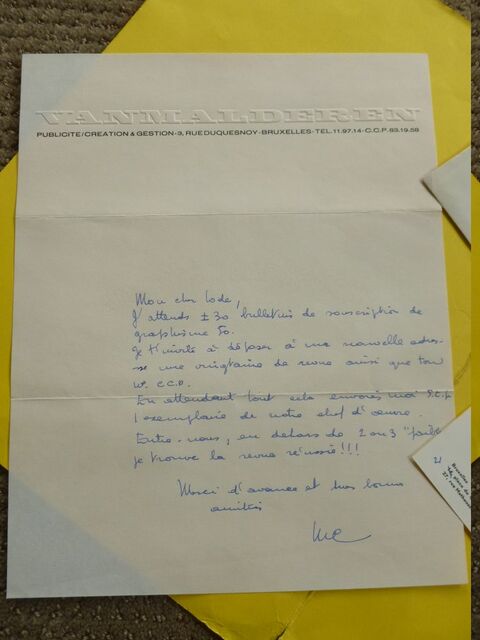 VANMALDEREN
PUBLICITE/CREATION & GESTION-3, RUE DUQUESNOY-BRUXELLES-TEL.11.97.14-C.C.P. 83.19.58
Mon cher Lode,
J'attends ± 30 bulletins de souscription de
graphisme 50.
Je t'invite à déposer à ma nouvelle adres-
se une vingtaine de revue ainsi que ton
n° c.c.p.
En attendant tout cela envoies moi P.E.
1 exemplaire de notre chef d'œuvre.
Entre-nous, en dehors de 2 ou 3
je trouve la revue réussie!!!
Merci d'avance et très bonnes
amitiés
Luc
21
Bruxelles